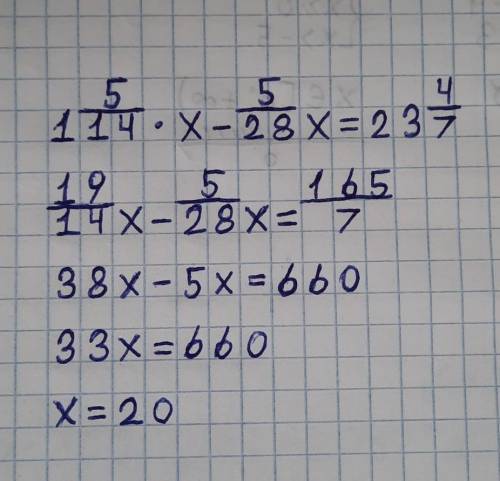 1 5/14 · x - 5/28 x = 23 4/7
19/14 x - 5/28 x = 165/7
38x - 5x = 660
33x = 660
x = 20